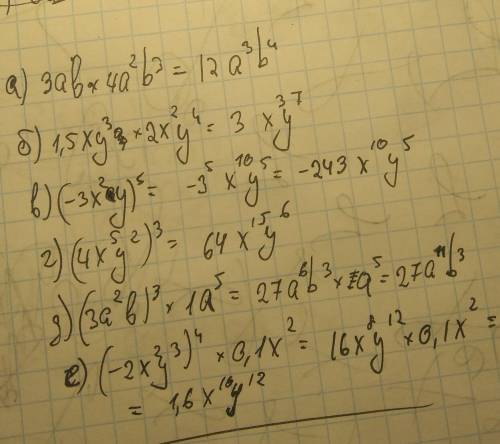 а) 3ab × 4a²b³ = 12 a³b⁴
б) 1,5xy³ × 2x²y⁴ = 3 x³y⁷
в) (-3x²y)⁵ = -3⁵ x¹⁰y⁵ = -243 x¹⁰y⁵
г) (4x⁵y²)³ = 64 x¹⁵y⁶
д) (3a²b)³ × 1a⁵ = 27a⁶b³ × 1a⁵ = 27a¹¹b³
е) (-2x²y³)⁴ × 0,1x² = 16x⁸y¹² × 0,1x² =
= 1,6x¹⁰y¹²